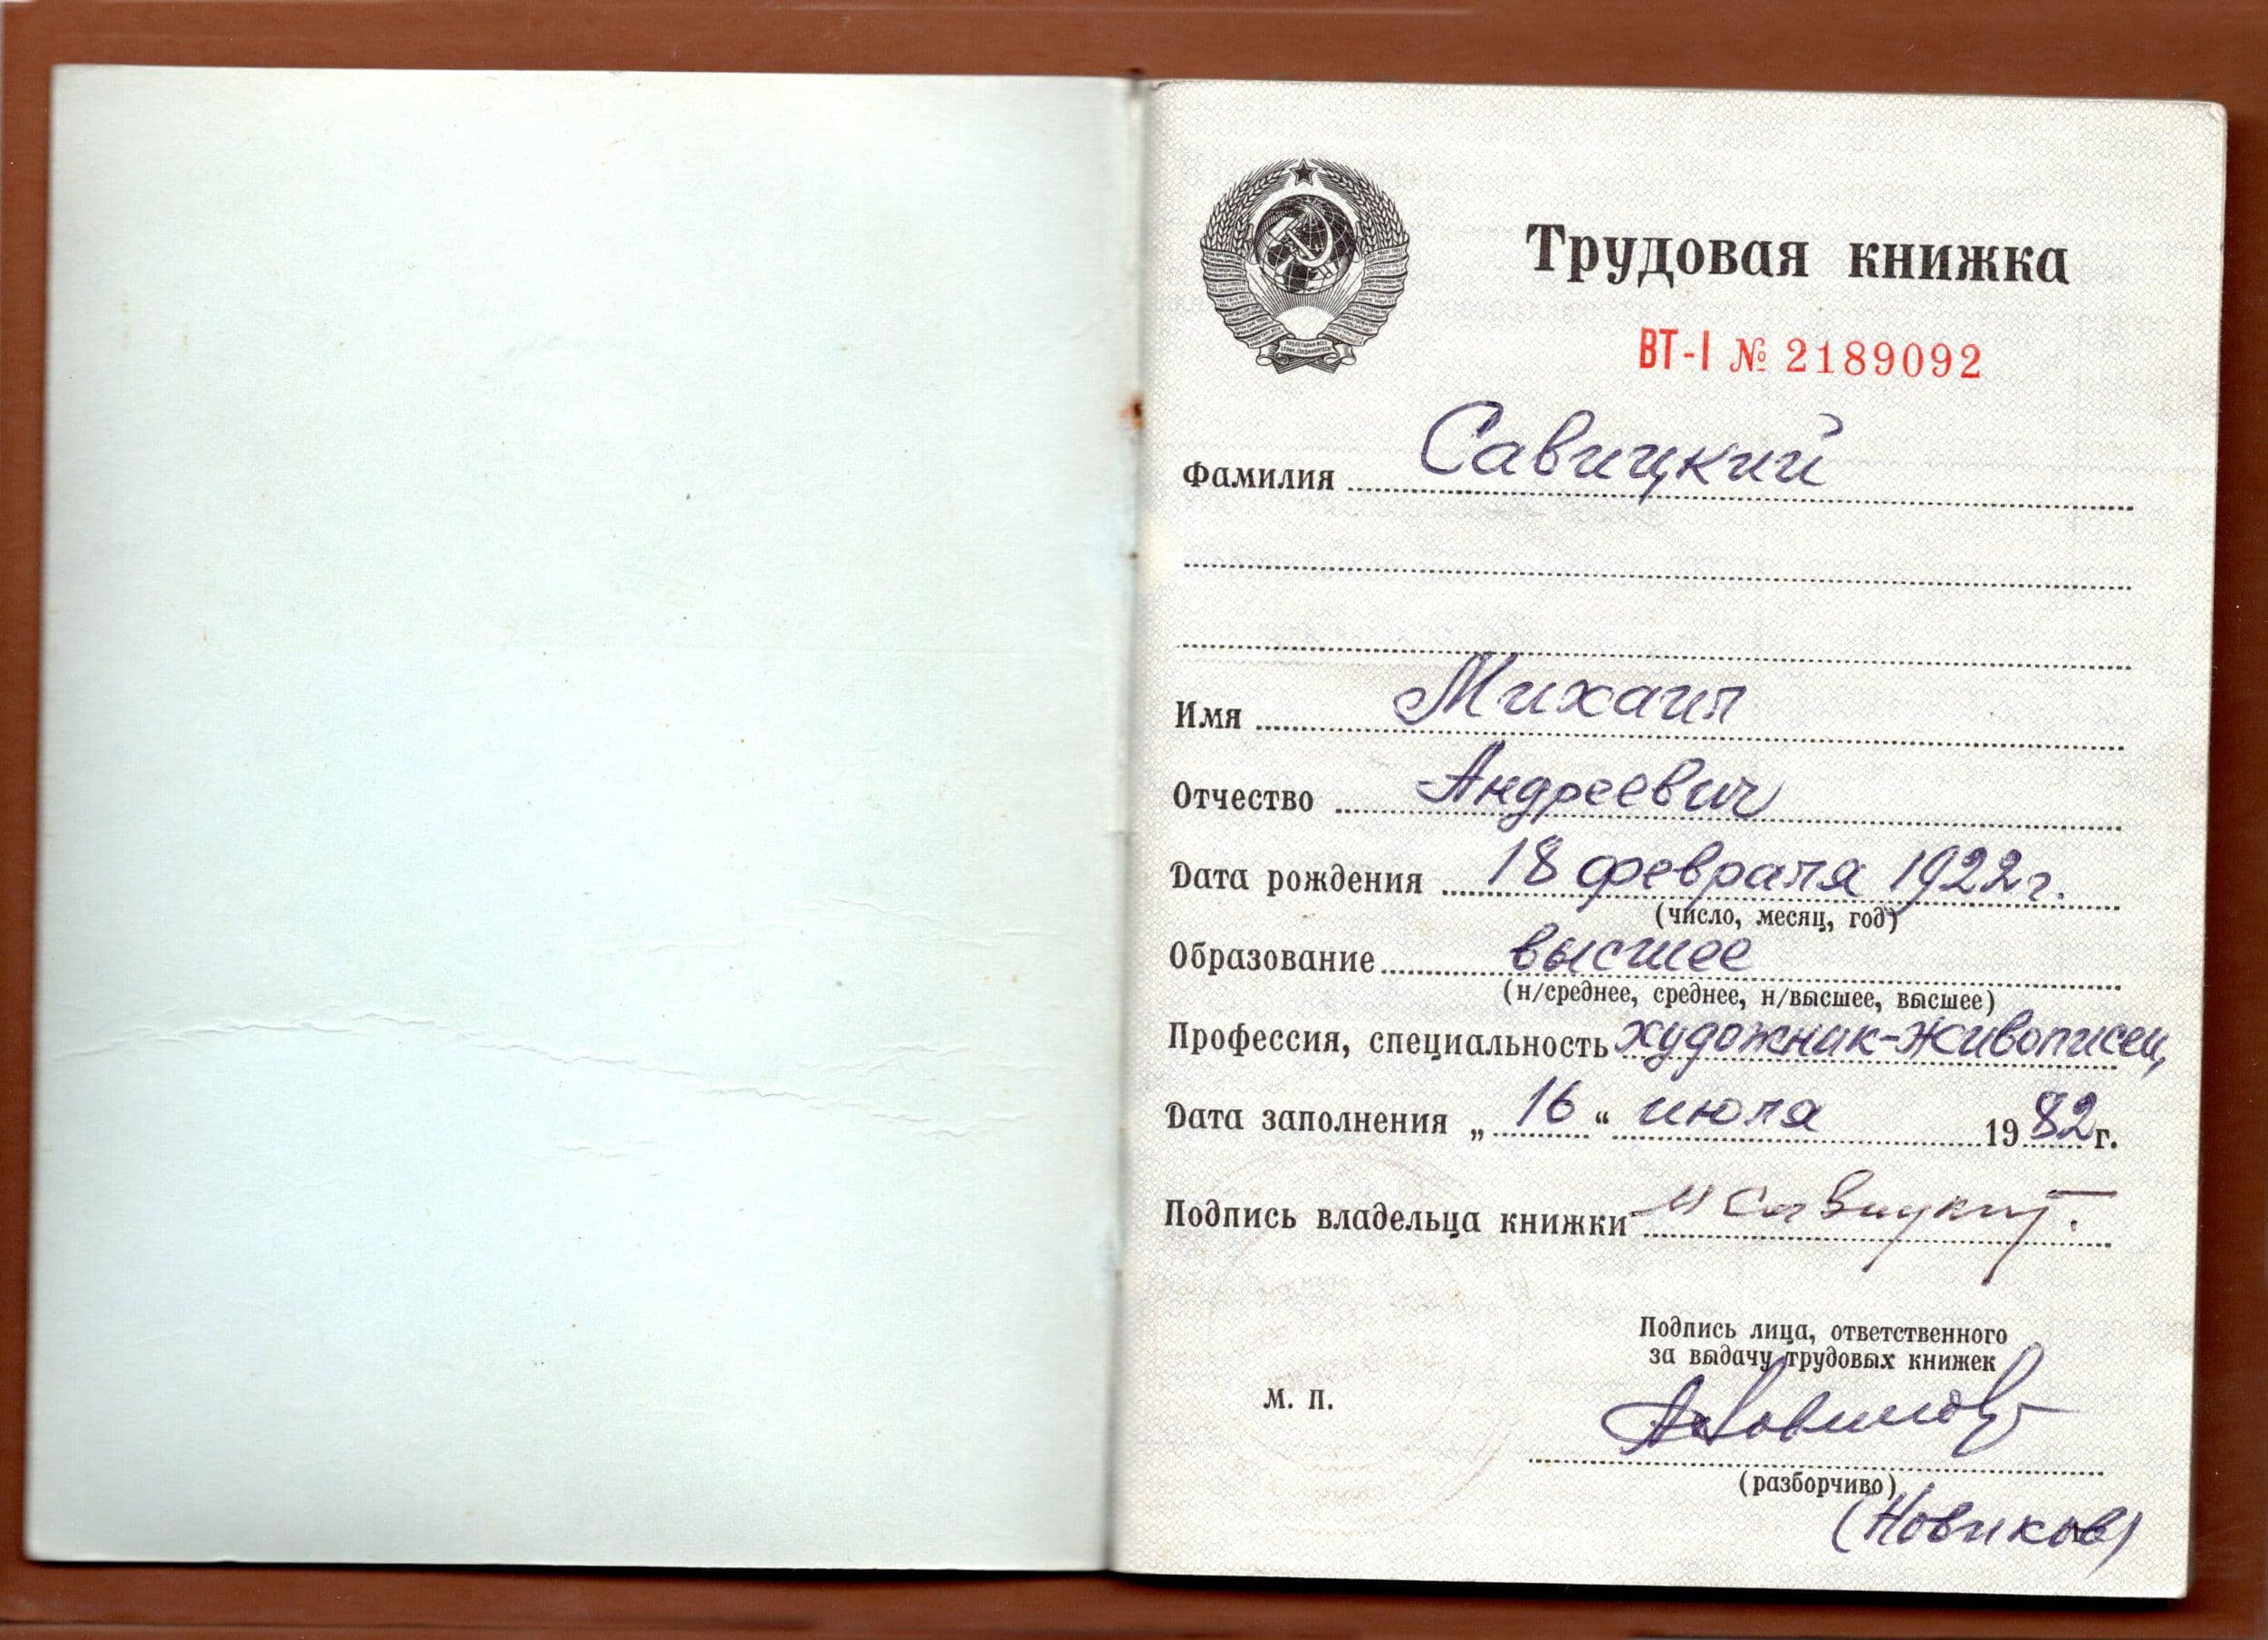 Трудовая книжка
ВТ-I № 2189092
Фамилия Савицкий
Имя Михаил
Отчество Андреевич
Дата рождения 18 февраля 1922г.
(число, месяц, год)
Образование высшее
(н/среднее, среднее, н/высшее, высшее)
Профессия, специальность художник-живописец
Дата заполнения „ 16 “ июля 1982 г.
Подпись владельца книжки М Савицкий.
Подпись лица, ответственного
за выдачу трудовых книжек
М. П.
(разборчиво)
(Новиков)